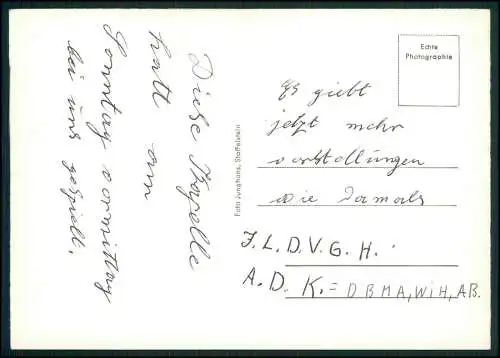 Diese Kapelle
hatt am
Sonntag vormittag
bei uns gespielt.
Foto Junghans, Staffelstein
Echte
Photographie
Es giebt
jetzt mehr
vorstellungen
wie damals
J. L. D. V. G. H.
A. D. K. = D B M A, W i H, A B.